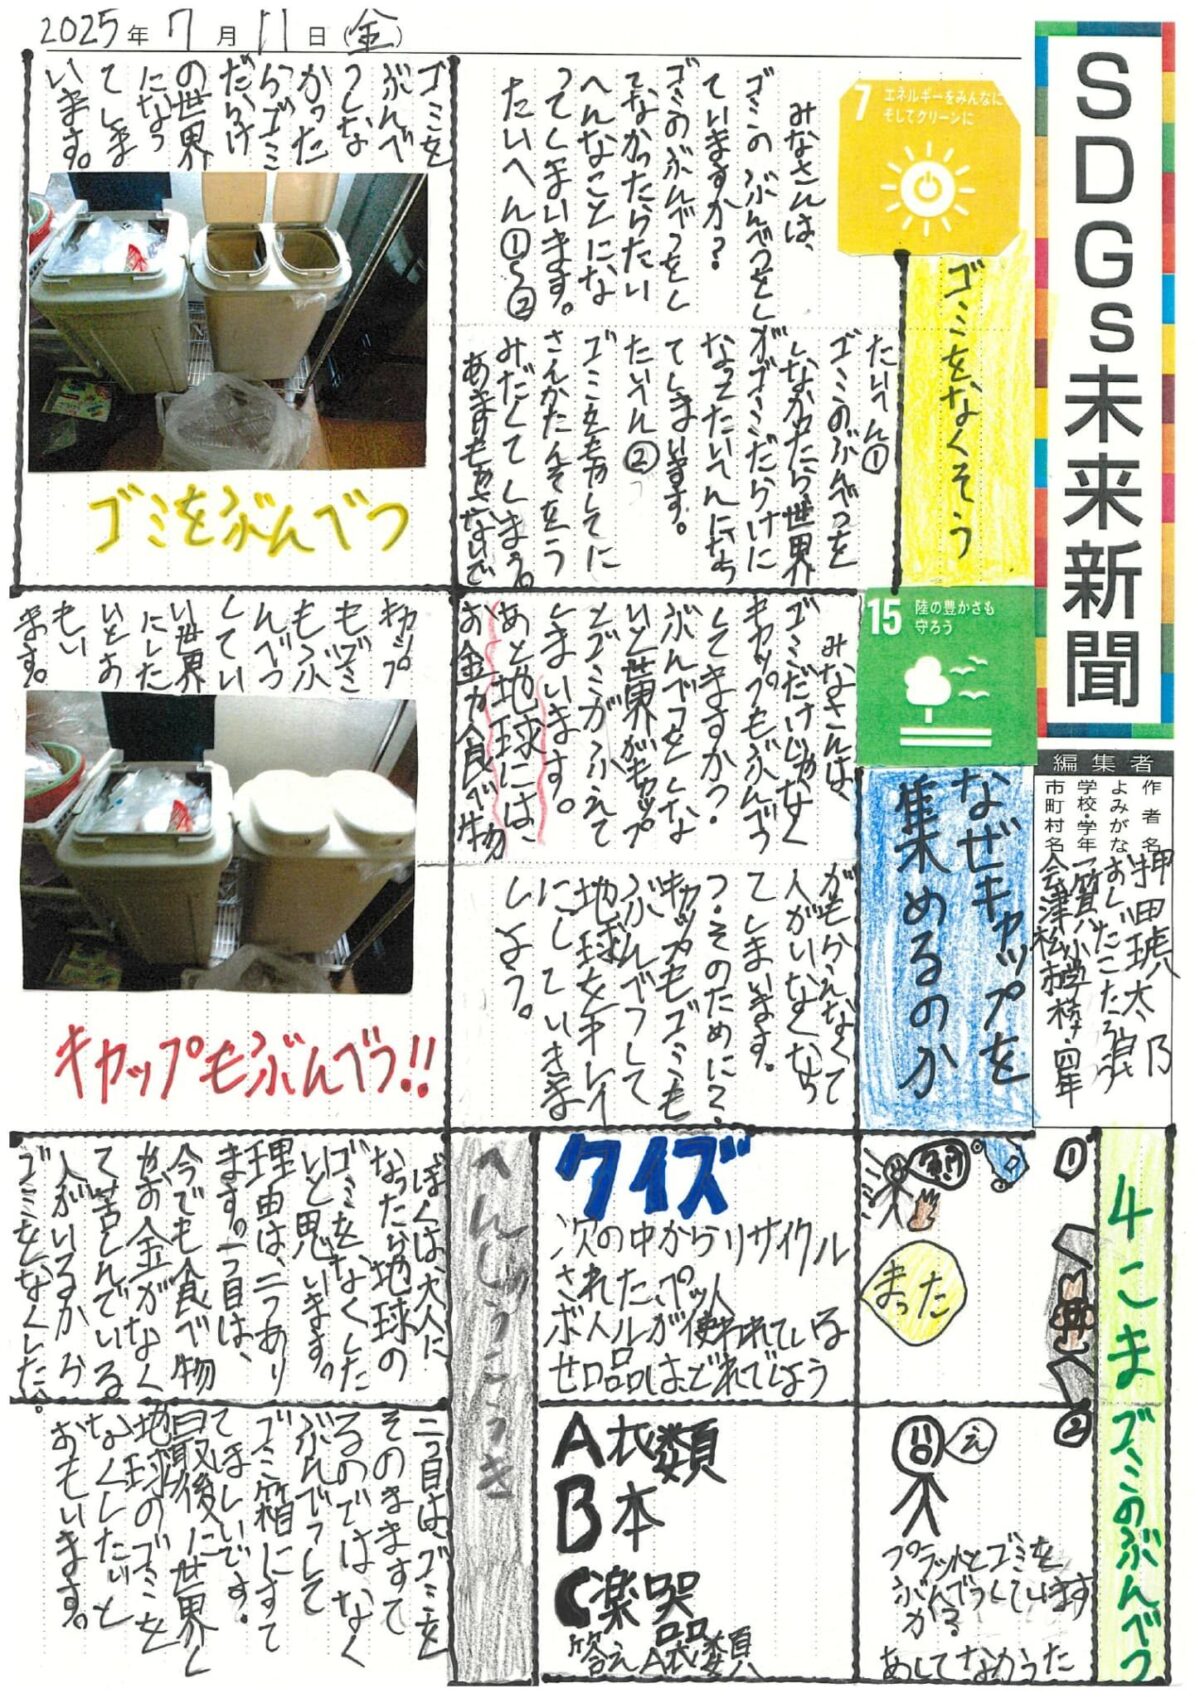 2025年7月11日(金)
SDGs未来新聞
編集者
作者名
よみがな
学校・学年
市町村名
7 エネルギーをみんなに
そしてクリーンに
ゴミをなくそう
みなさんは、
ゴミのぶんべつをし
ていますか?
ゴミのぶんべつをし
てなかったらたい
へんなことにな
ってしまいます。
たいへん①〜②
たいへん①
ゴミのぶんべつを
しなかったら、世界
がゴミだらけに
なってたいへんになっ
てしまいます。
たいへん②
ゴミをもやしてに
さんかたんそをう
みだくてしまう。
ゴミを
ぶんべ
つしな
かった
らゴミ
だらけ
の世界
になっ
てしま
います。
ゴミをぶんべつ
15 陸の豊かさも
守ろう
なぜキャップを
集めるのか
みなさんは、
ゴミだけじゃなく
キャップもぶんべつ
してますか?
ぶんべつをしな
いと世界がキャップ
とゴミがふえて
しまいます。
あと地球には、
お金カ食べ物
がもらえなくて
人がいなくなっ
てしまいます。
つ・そのために?
キャップもゴミも
ぶんべつして
地球をキレイ
にしていきま
しょう。
キャップ
もゴミ
もぶ
んべつ
してい
い世界
にした
いとお
もい
ます。
キャップもぶんべつ!!
4こまゴミのぶんべつ
①
まった
②
え
プラットとゴミを
ぶんべつしています
か?
あしてなかった
クイズ
次の中からリサイクル
されたペット
ボトルが使われている
せ品はどれでしょう
A衣類
B本
C楽器
答えA衣類
へんしゅうこうき
ぼくは、大人に
なったら地球の
ゴミをなくした
いと思います。
理由は、二つあり
ます。一つ目は、
今でも食べ物
やお金がなく
て苦しんでいる
人がいるから
ゴミをなくした。
二つ目は、ゴミを
そのますて
るのではなく
ぶんべつして
ゴミ箱にすて
てほしいです。
最後に世界し
地球のゴミを
なくしたいと
おもいます。